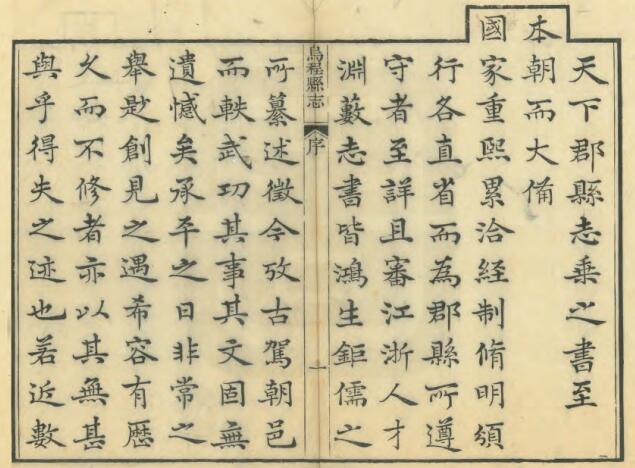 天下郡縣志乘之書至
本朝而大備
國家重熙累洽經制脩明頒
行各直省而為郡縣所遵
守者至詳且審江浙人才
淵藪志書皆鴻生鉅儒之
烏程縣志
序
一
所纂述徵今攷古駕朝邑
而軼武功其事其文固無
遺憾矣承平之日非常之
舉尟創見之遇希容有歷
久而不修者亦以其無甚
與乎得失之迹也若近數